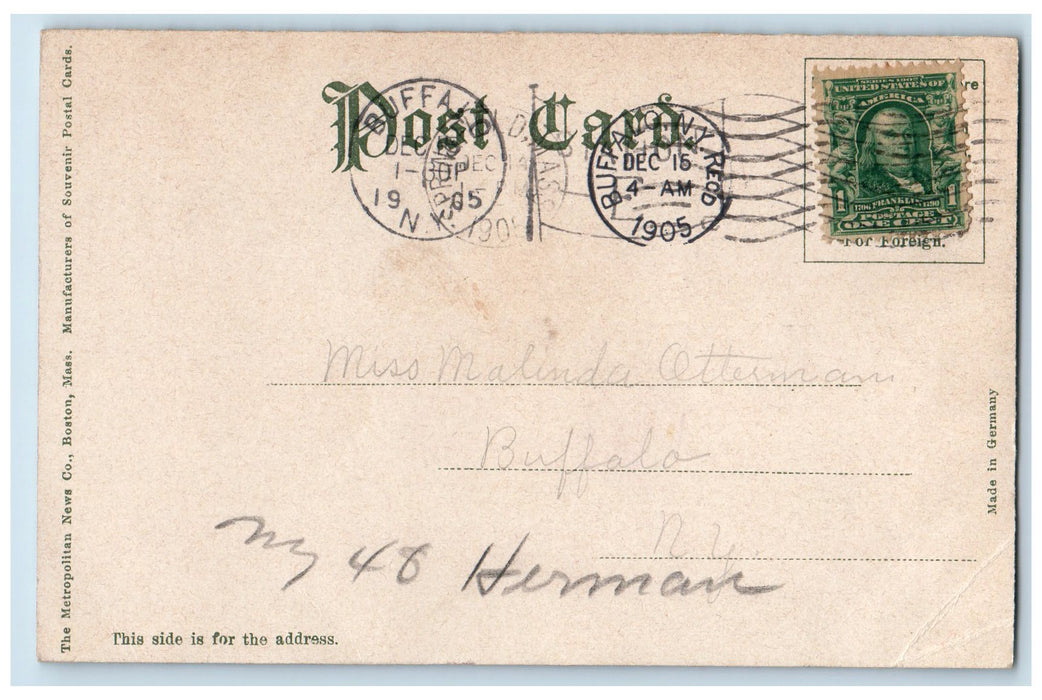 Post Card.
BUFFALO
DEC
1-30P
1905
N.Y.
DEC 15
MASS.
1905
BUFFALO, N.Y. REC'D
DEC 15
4-AM
1905
SERIES 1902
UNITED STATES OF
AMERICA
1706 FRANKLIN 1790
1 POSTAGE 1
ONE CENT
re
For Foreign.
The Metropolitan News Co., Boston, Mass. Manufacturers of Souvenir Postal Cards.
Miss Malinda Otterman,
Buffalo
N.Y.
48 Herman
Made in Germany
This side is for the address.